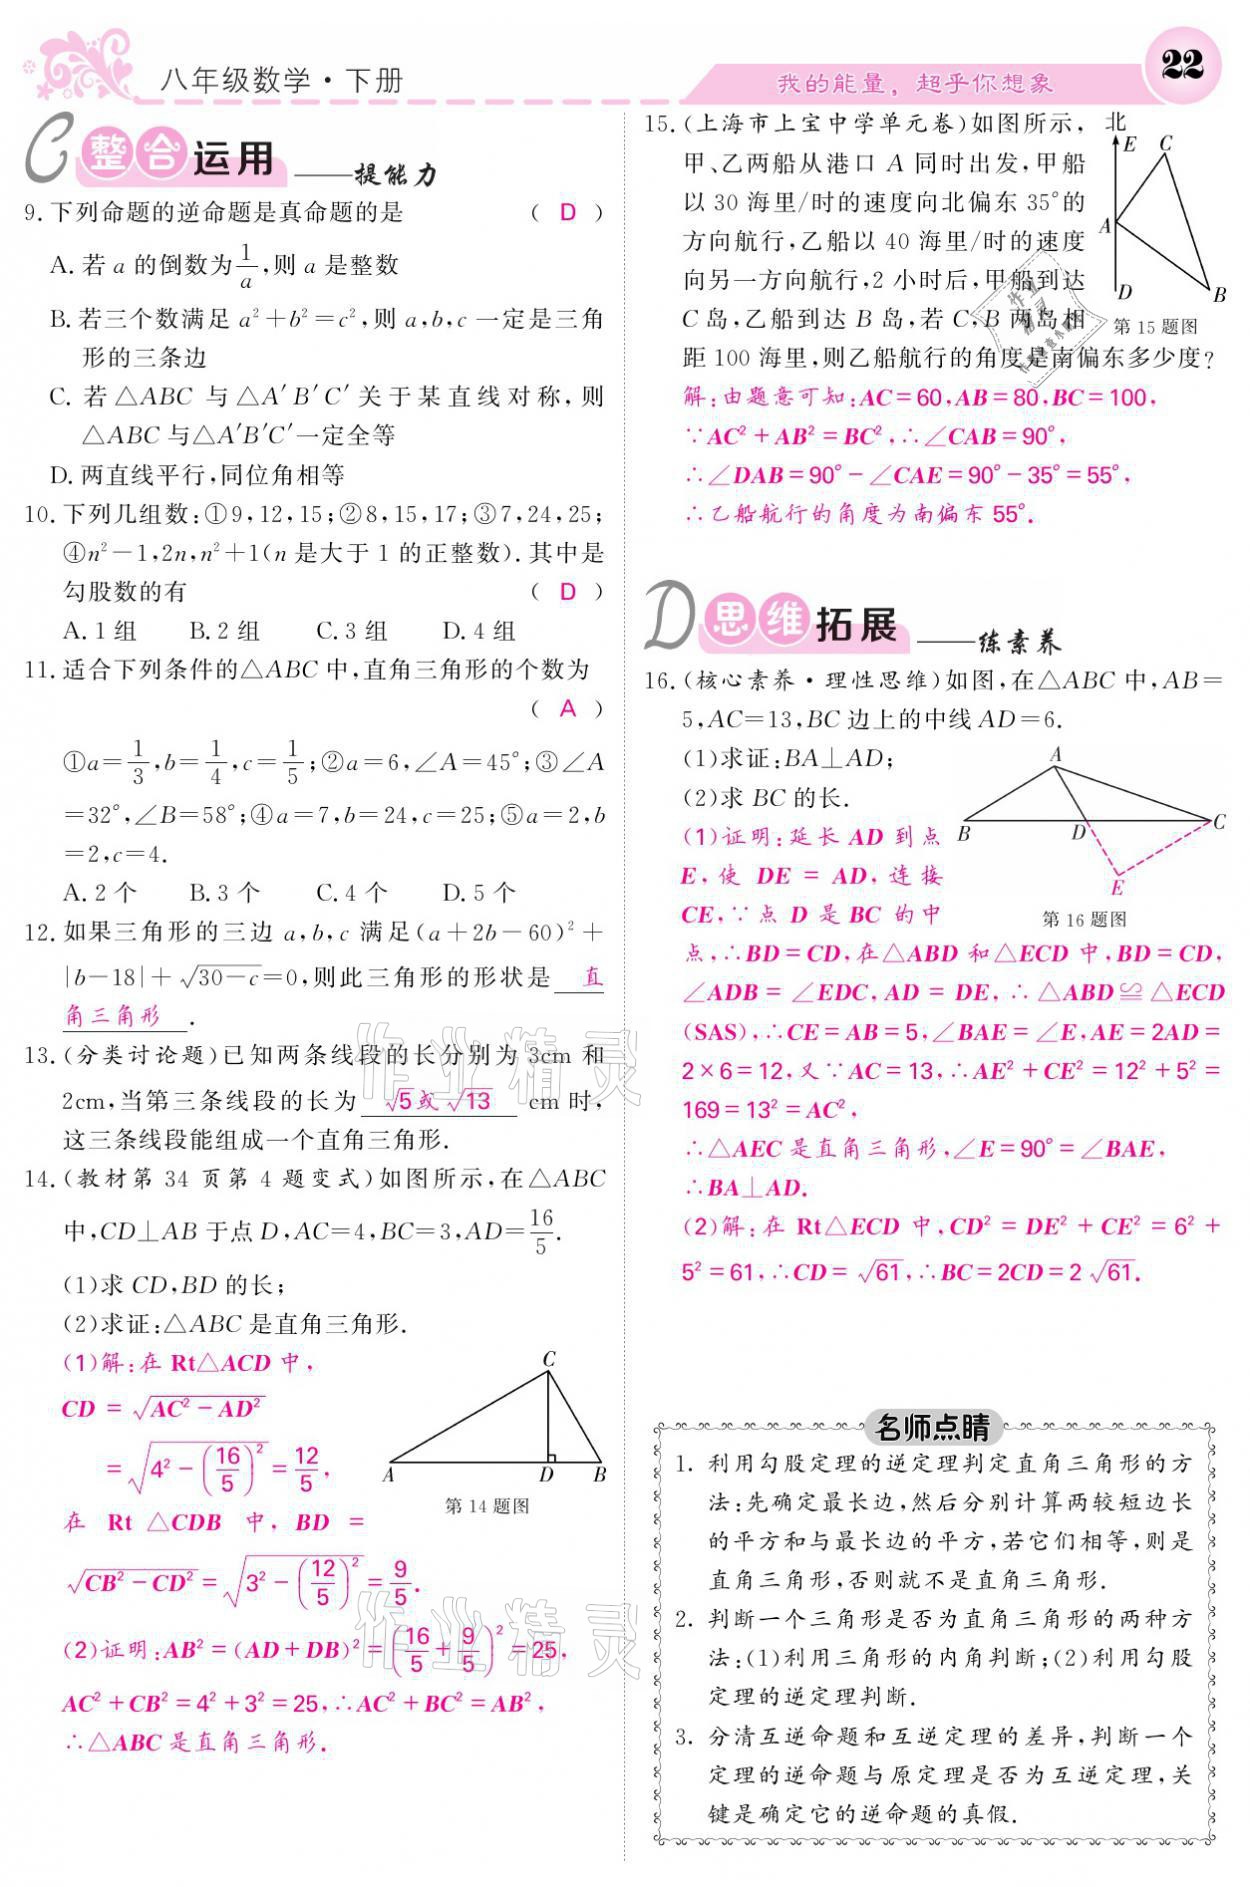 八年级数学·下册
我的能量，超乎你想象
22
C 整合运用 ——提能力
9.下列命题的逆命题是真命题的是 ( D )
A.若 a 的倒数为1/a,则 a 是整数
B.若三个数满足 a²+b²=c²,则 a,b,c 一定是三角
形的三条边
C.若△ABC 与△A′B′C′关于某直线对称,则
△ABC 与△A′B′C′一定全等
D.两直线平行,同位角相等
10.下列几组数:①9,12,15;②8,15,17;③7,24,25;
④n²-1,2n,n²+1(n 是大于 1 的正整数).其中是
勾股数的有 ( D )
A.1 组 B.2 组 C.3 组 D.4 组
11.适合下列条件的△ABC 中,直角三角形的个数为
( A )
①a=1/3,b=1/4,c=1/5;②a=6,∠A=45°;③∠A
=32°,∠B=58°;④a=7,b=24,c=25;⑤a=2,b
=2,c=4.
A.2 个 B.3 个 C.4 个 D.5 个
12.如果三角形的三边 a,b,c 满足(a+2b-60)²+
|b-18|+√(30-c)=0,则此三角形的形状是 直
角三角形 .
13.(分类讨论题)已知两条线段的长分别为 3cm 和
2cm,当第三条线段的长为 √5或√13 cm 时,
这三条线段能组成一个直角三角形.
14.(教材第 34 页第 4 题变式)如图所示,在△ABC
中,CD⊥AB 于点 D,AC=4,BC=3,AD=16/5.
(1)求 CD,BD 的长;
(2)求证:△ABC 是直角三角形.
(1)解:在 Rt△ACD 中,
CD=√(AC²-AD²)
=√(4²-(16/5)²)=12/5,
在 Rt △CDB 中, BD =
√(CB²-CD²)=√(3²-(12/5)²)=9/5.
C
A D B
第 14 题图
(2)证明:AB²=(AD+DB)²=(16/5+9/5)²=25,
AC²+CB²=4²+3²=25,∴AC²+BC²=AB²,
∴△ABC 是直角三角形.
15.(上海市上宝中学单元卷)如图所示,
甲、乙两船从港口 A 同时出发,甲船
以 30 海里/时的速度向北偏东 35°的
方向航行,乙船以 40 海里/时的速度
向另一方向航行,2 小时后,甲船到达
C 岛,乙船到达 B 岛,若 C,B 两岛相
距 100 海里,则乙船航行的角度是南偏东多少度?
北
E C
A
D B
第 15 题图
解:由题意可知:AC=60,AB=80,BC=100,
∵AC²+AB²=BC²,∴∠CAB=90°,
∴∠DAB=90°-∠CAE=90°-35°=55°,
∴乙船航行的角度为南偏东 55°.
D 思维拓展 ——练素养
16.(核心素养·理性思维)如图,在△ABC 中,AB=
5,AC=13,BC 边上的中线 AD=6.
(1)求证:BA⊥AD;
(2)求 BC 的长.
A
B D C
E
第 16 题图
(1)证明:延长 AD 到点
E,使 DE = AD,连接
CE,∵点 D 是 BC 的中
点,∴BD=CD,在△ABD 和△ECD 中,BD=CD,
∠ADB=∠EDC,AD=DE,∴△ABD≌△ECD
(SAS),∴CE=AB=5,∠BAE=∠E,AE=2AD=
2×6=12,又∵AC=13,∴AE²+CE²=12²+5²=
169=13²=AC²,
∴△AEC 是直角三角形,∠E=90°=∠BAE,
∴BA⊥AD.
(2)解:在 Rt△ECD 中,CD²=DE²+CE²=6²+
5²=61,∴CD=√61,∴BC=2CD=2√61.
名师点睛
1.利用勾股定理的逆定理判定直角三角形的方
法:先确定最长边,然后分别计算两较短边长
的平方和与最长边的平方,若它们相等,则是
直角三角形,否则就不是直角三角形.
2.判断一个三角形是否为直角三角形的两种方
法:(1)利用三角形的内角判断;(2)利用勾股
定理的逆定理判断.
3.分清互逆命题和互逆定理的差异,判断一个
定理的逆命题与原定理是否为互逆定理,关
键是确定它的逆命题的真假.
作业精灵
作业精灵